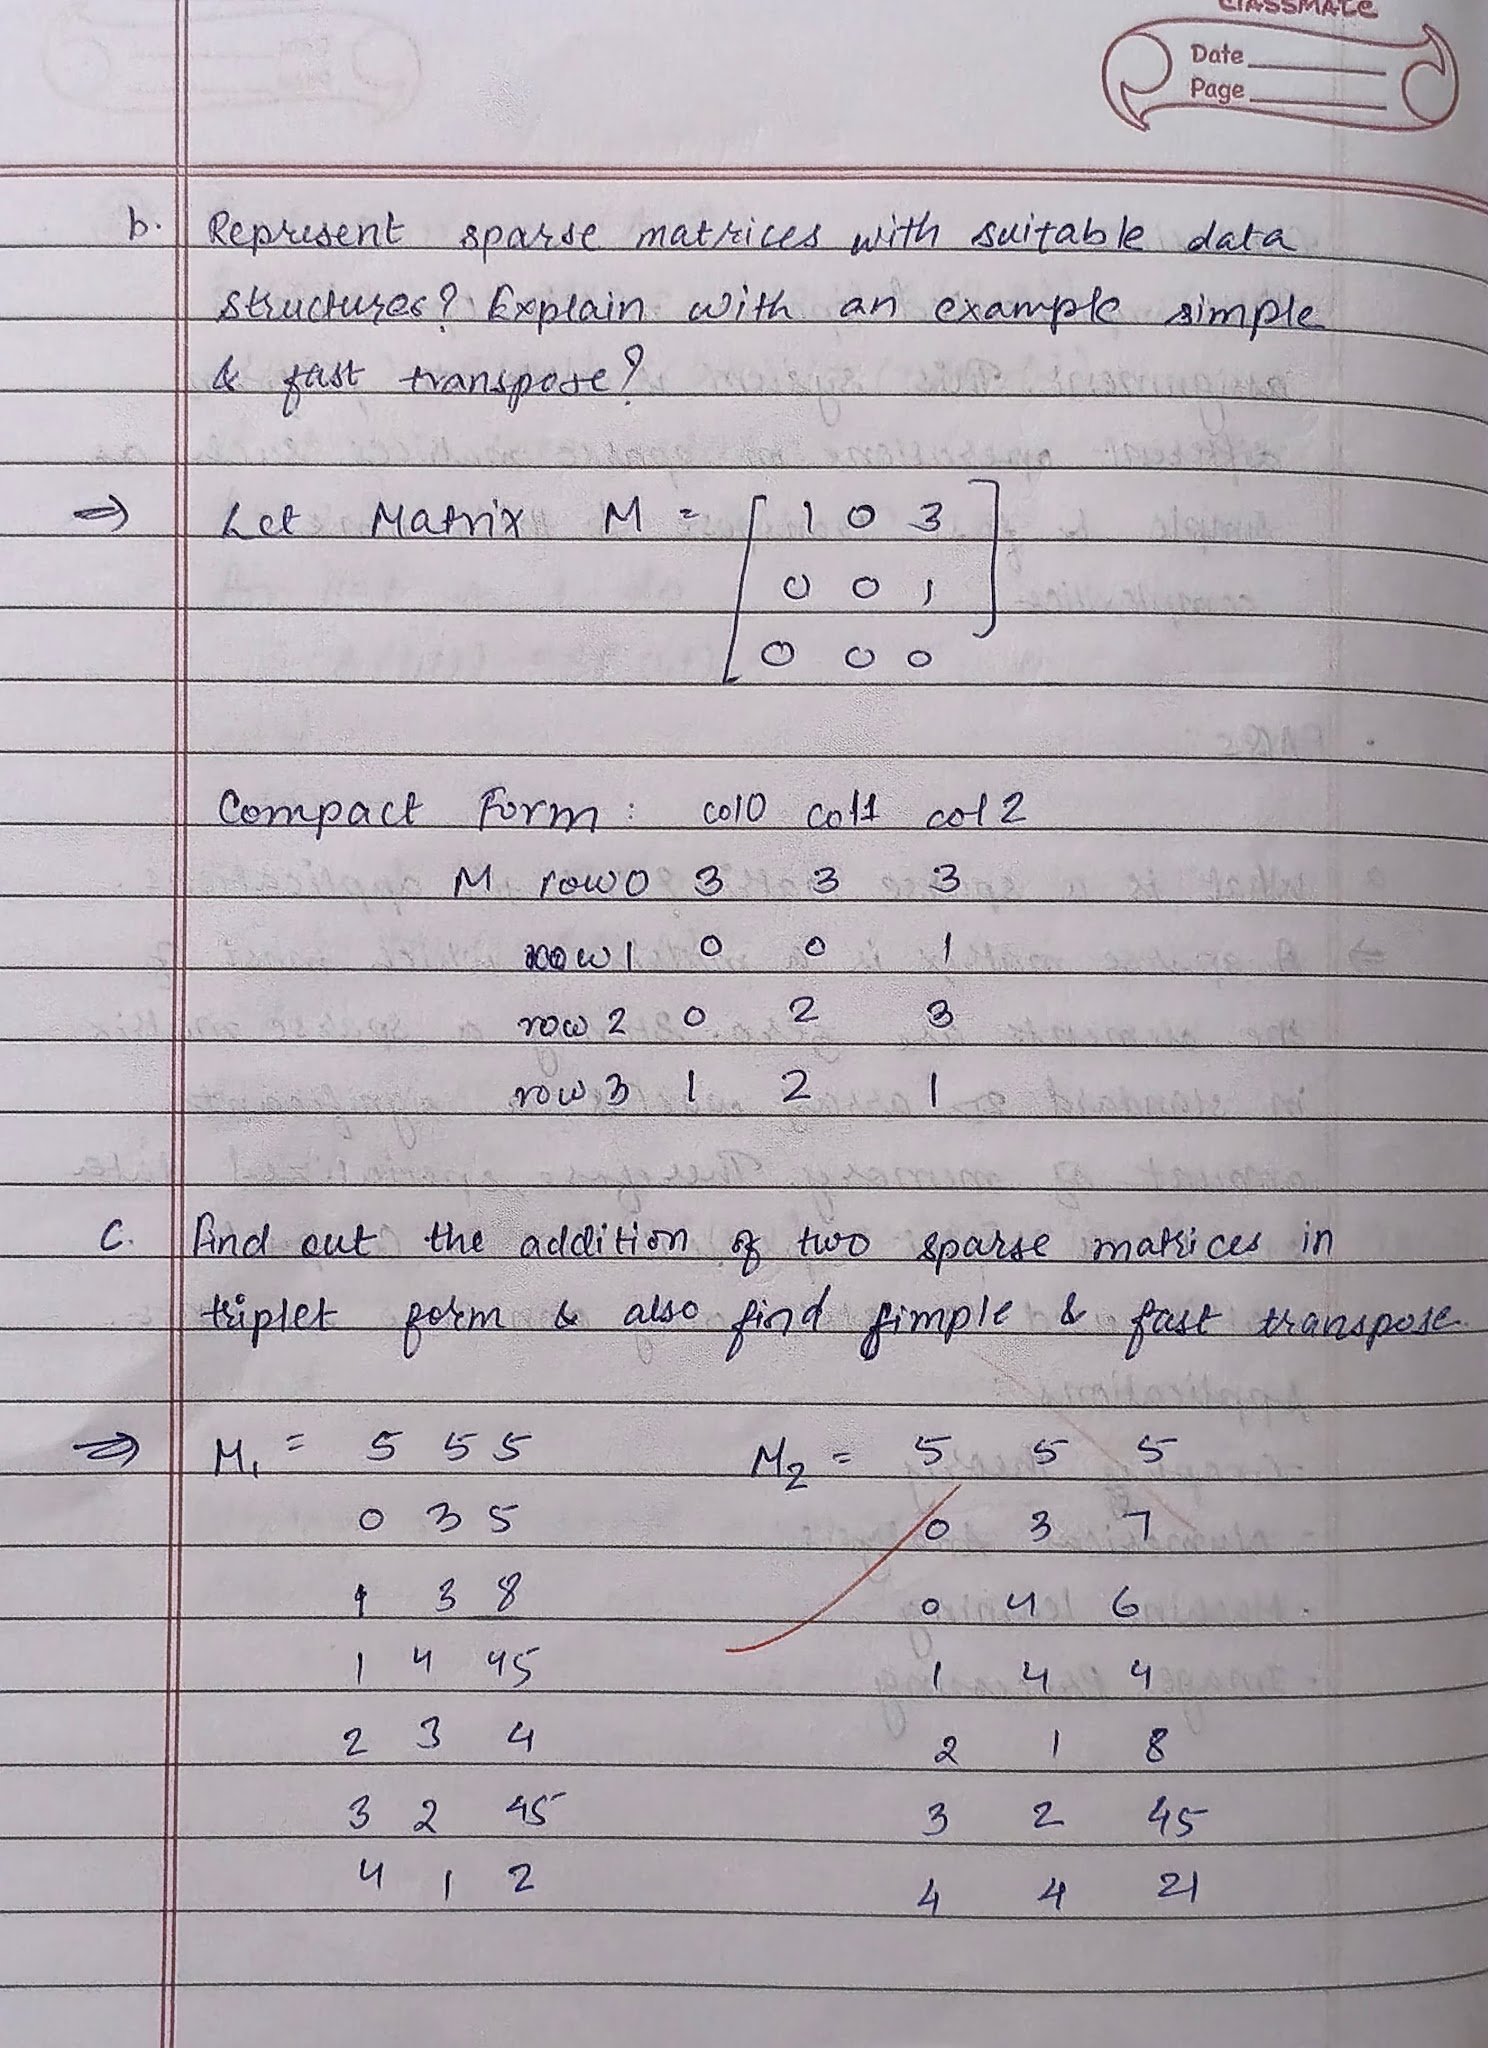 classmate
Date
Page
b. Represent sparse matrices with suitable data
structures? Explain with an example simple
& fast transpose?
⇒ Let Matrix M = [ 1 0 3 ]
0 0 1
0 0 0
Compact Form : col0 col1 col2
M row0 3 3 3
row1 0 0 1
row2 0 2 3
row3 1 2 1
C. Find out the addition of two sparse matrices in
triplet form & also find simple & fast transpose.
⇒ M₁ = 5 5 5 M₂ = 5 5 5
0 3 5 0 3 7
1 3 8 0 4 6
1 4 45 1 4 4
2 3 4 2 1 8
3 2 45 3 2 45
4 1 2 4 4 21